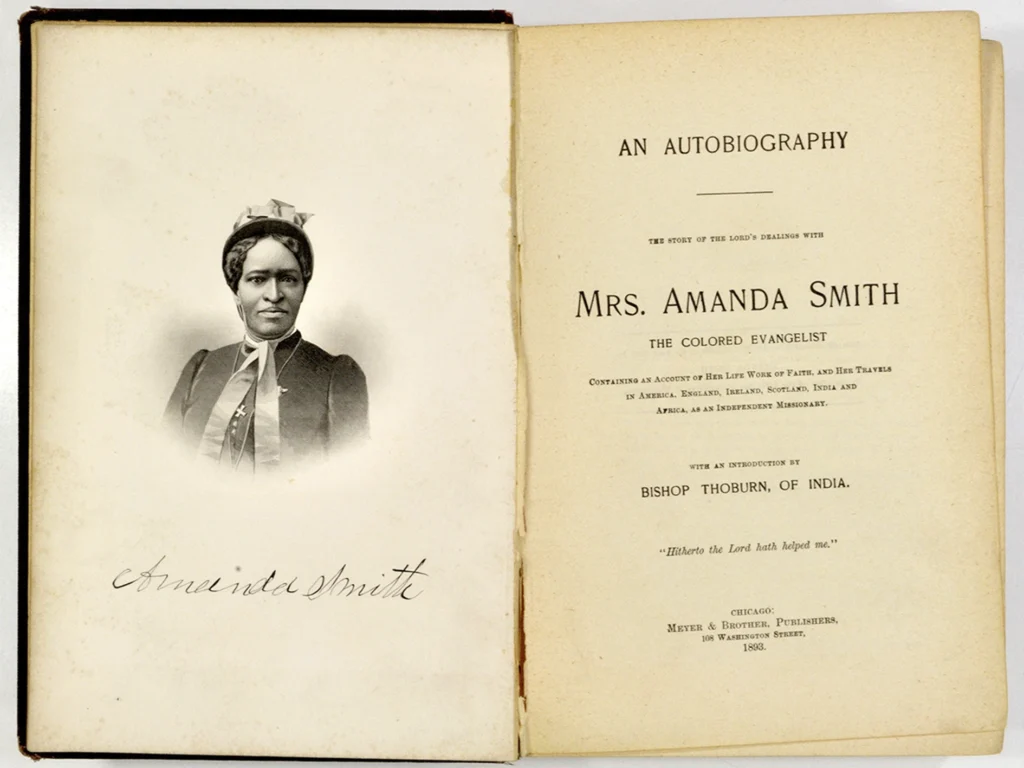 Amanda Smith
AN AUTOBIOGRAPHY
THE STORY OF THE LORD'S DEALINGS WITH
MRS. AMANDA SMITH
THE COLORED EVANGELIST
CONTAINING AN ACCOUNT OF HER LIFE WORK OF FAITH, AND HER TRAVELS
IN AMERICA, ENGLAND, IRELAND, SCOTLAND, INDIA AND
AFRICA, AS AN INDEPENDENT MISSIONARY.
WITH AN INTRODUCTION BY
BISHOP THOBURN, OF INDIA.
"Hitherto the Lord hath helped me."
CHICAGO:
MEYER & BROTHER, PUBLISHERS,
108 WASHINGTON STREET,
1893.